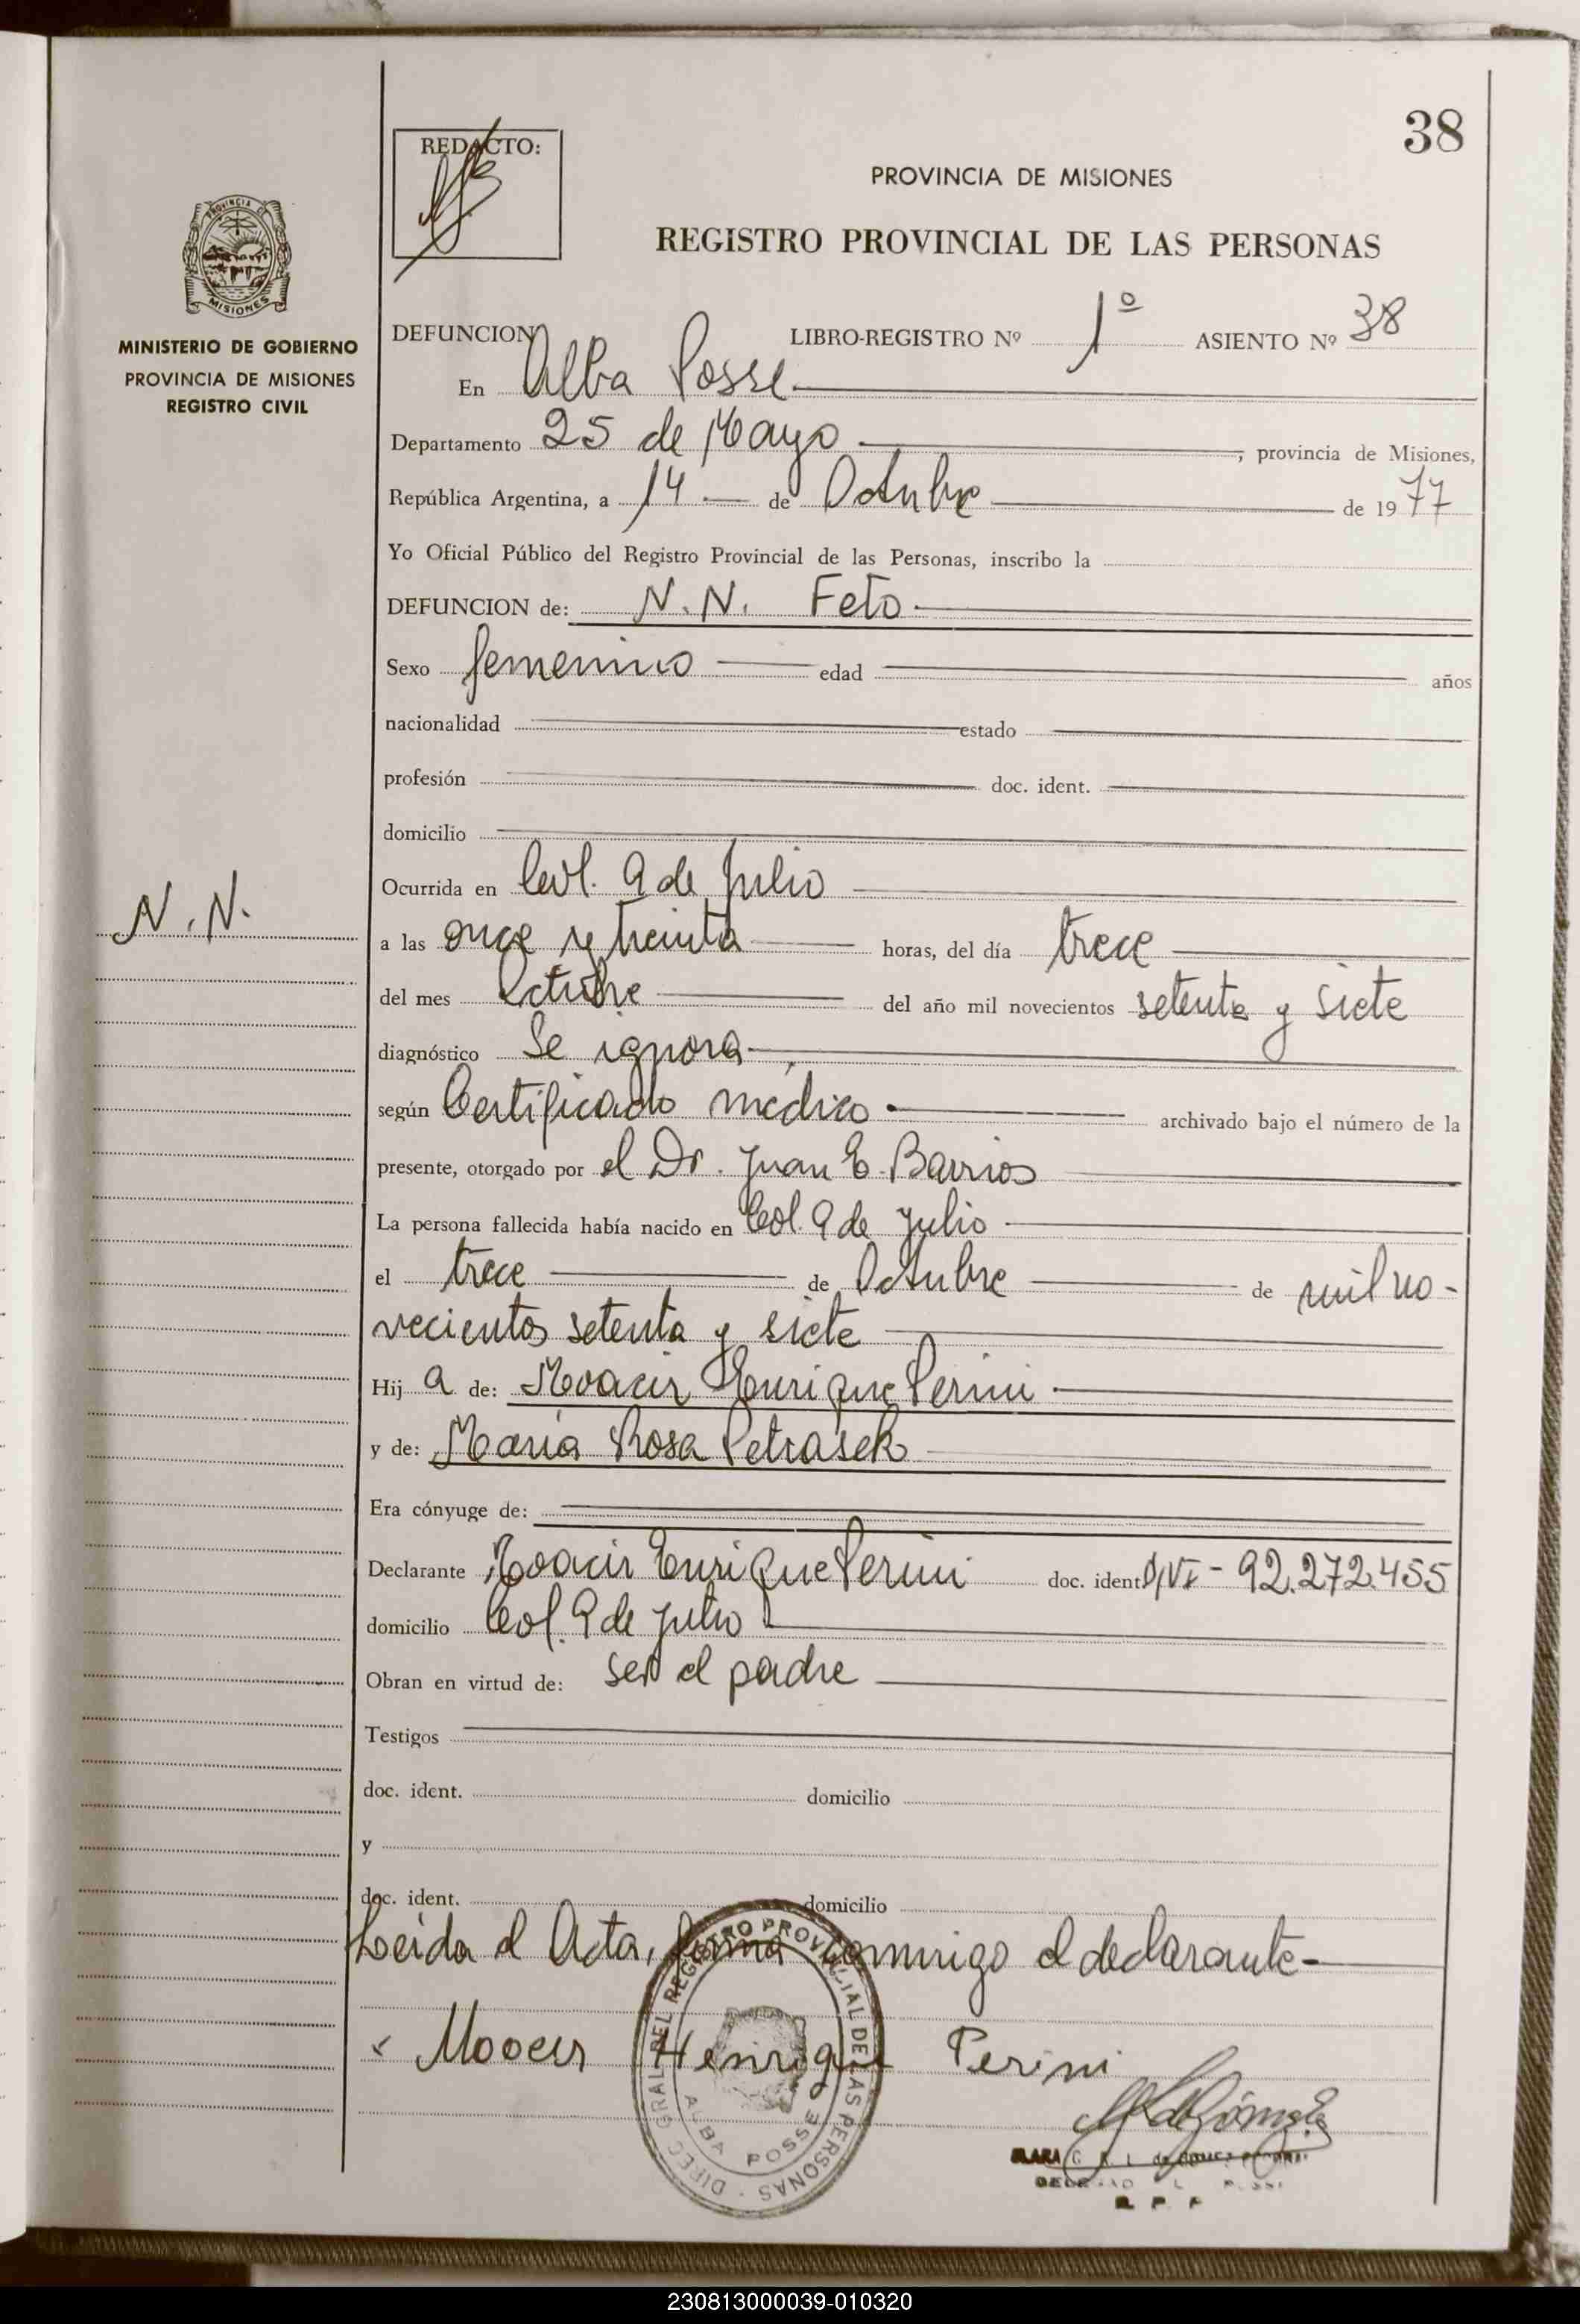 38
REDACTO:
PROVINCIA DE MISIONES
REGISTRO PROVINCIAL DE LAS PERSONAS
MISIONES
MINISTERIO DE GOBIERNO
PROVINCIA DE MISIONES
REGISTRO CIVIL
DEFUNCION LIBRO-REGISTRO Nº 1º ASIENTO Nº 38
En Alba Posse
Departamento 25 de Mayo, provincia de Misiones,
República Argentina, a 14 de Octubre de 1977
Yo Oficial Público del Registro Provincial de las Personas, inscribo la
DEFUNCION de: N.N. Feto
Sexo femenino edad años
nacionalidad estado
profesión doc. ident.
domicilio
Ocurrida en Col. 9 de Julio
N.N.
a las once y treinta horas, del día trece
del mes Octubre del año mil novecientos setenta y siete
diagnóstico Se ignora
según Certificado médico archivado bajo el número de la
presente, otorgado por el Dr. Juan E. Barrios
La persona fallecida había nacido en Col. 9 de Julio
el trece de Octubre de mil no-
vecientos setenta y siete
Hija de: Moacir Enrique Perini
y de: María Rosa Petrasek
Era cónyuge de:
Declarante Moacir Enrique Perini doc. ident. 92.272.455
domicilio Col. 9 de Julio
Obran en virtud de: ser el padre
Testigos
doc. ident. domicilio
y
doc. ident. domicilio
Leida el Acta, firma conmigo el declarante-
Moacir Henrique Perini
DIREC. GRAL. DEL REGISTRO PROVINCIAL DE LAS PERSONAS
ALBA POSSE
230813000039-010320